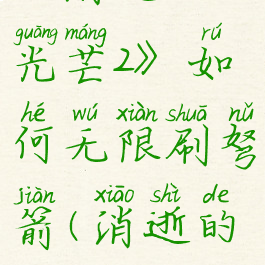 guāng máng rú
光芒2》如
hé wú xiàn shuā nǔ
何无限刷弩
jiàn xiāo shì de
箭(消逝的